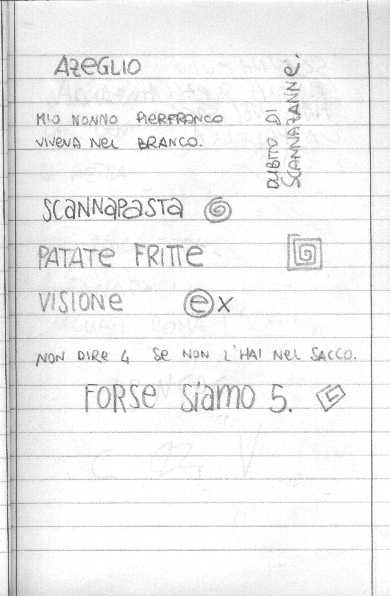 AZEGLIO
MIO NONNO PIERFRANCO
VIVEVA NEL BRANCO.
DUBITO DI
SCANNAZANNE.
SCANNAPASTA
PATATE FRITTE
VISIONE ex
NON DIRE 4 SE NON L'HAI NEL SACCO.
FORSE SIAMO 5.